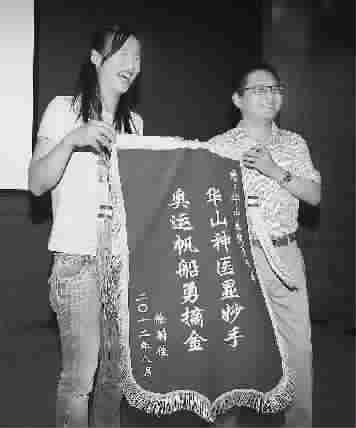 华山神医显妙手
奥运帆船勇摘金
徐莉佳
二〇一二年八月